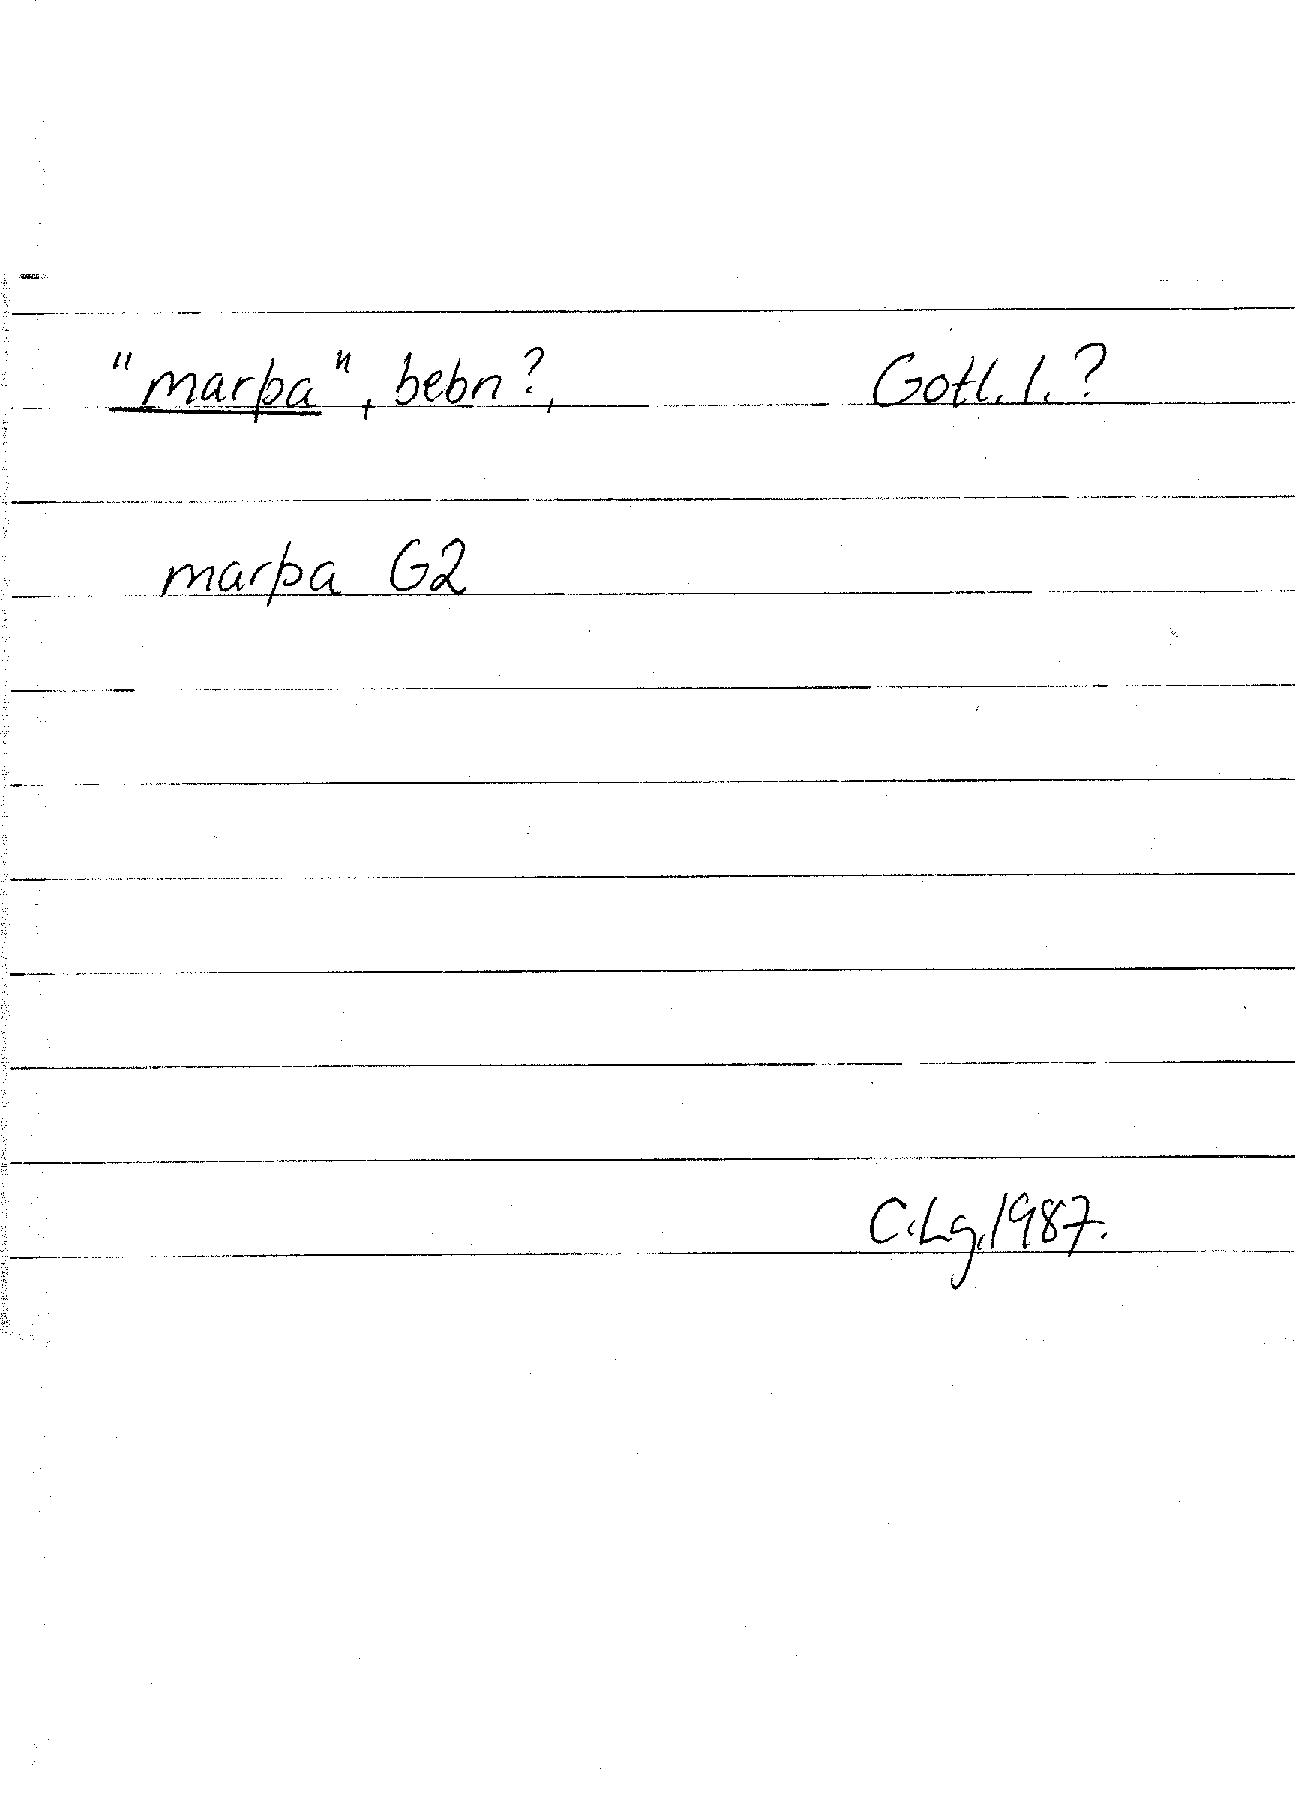 "marþa", bebn?, Gotl. l. ?
marþa G2
C.Lg. 1987.